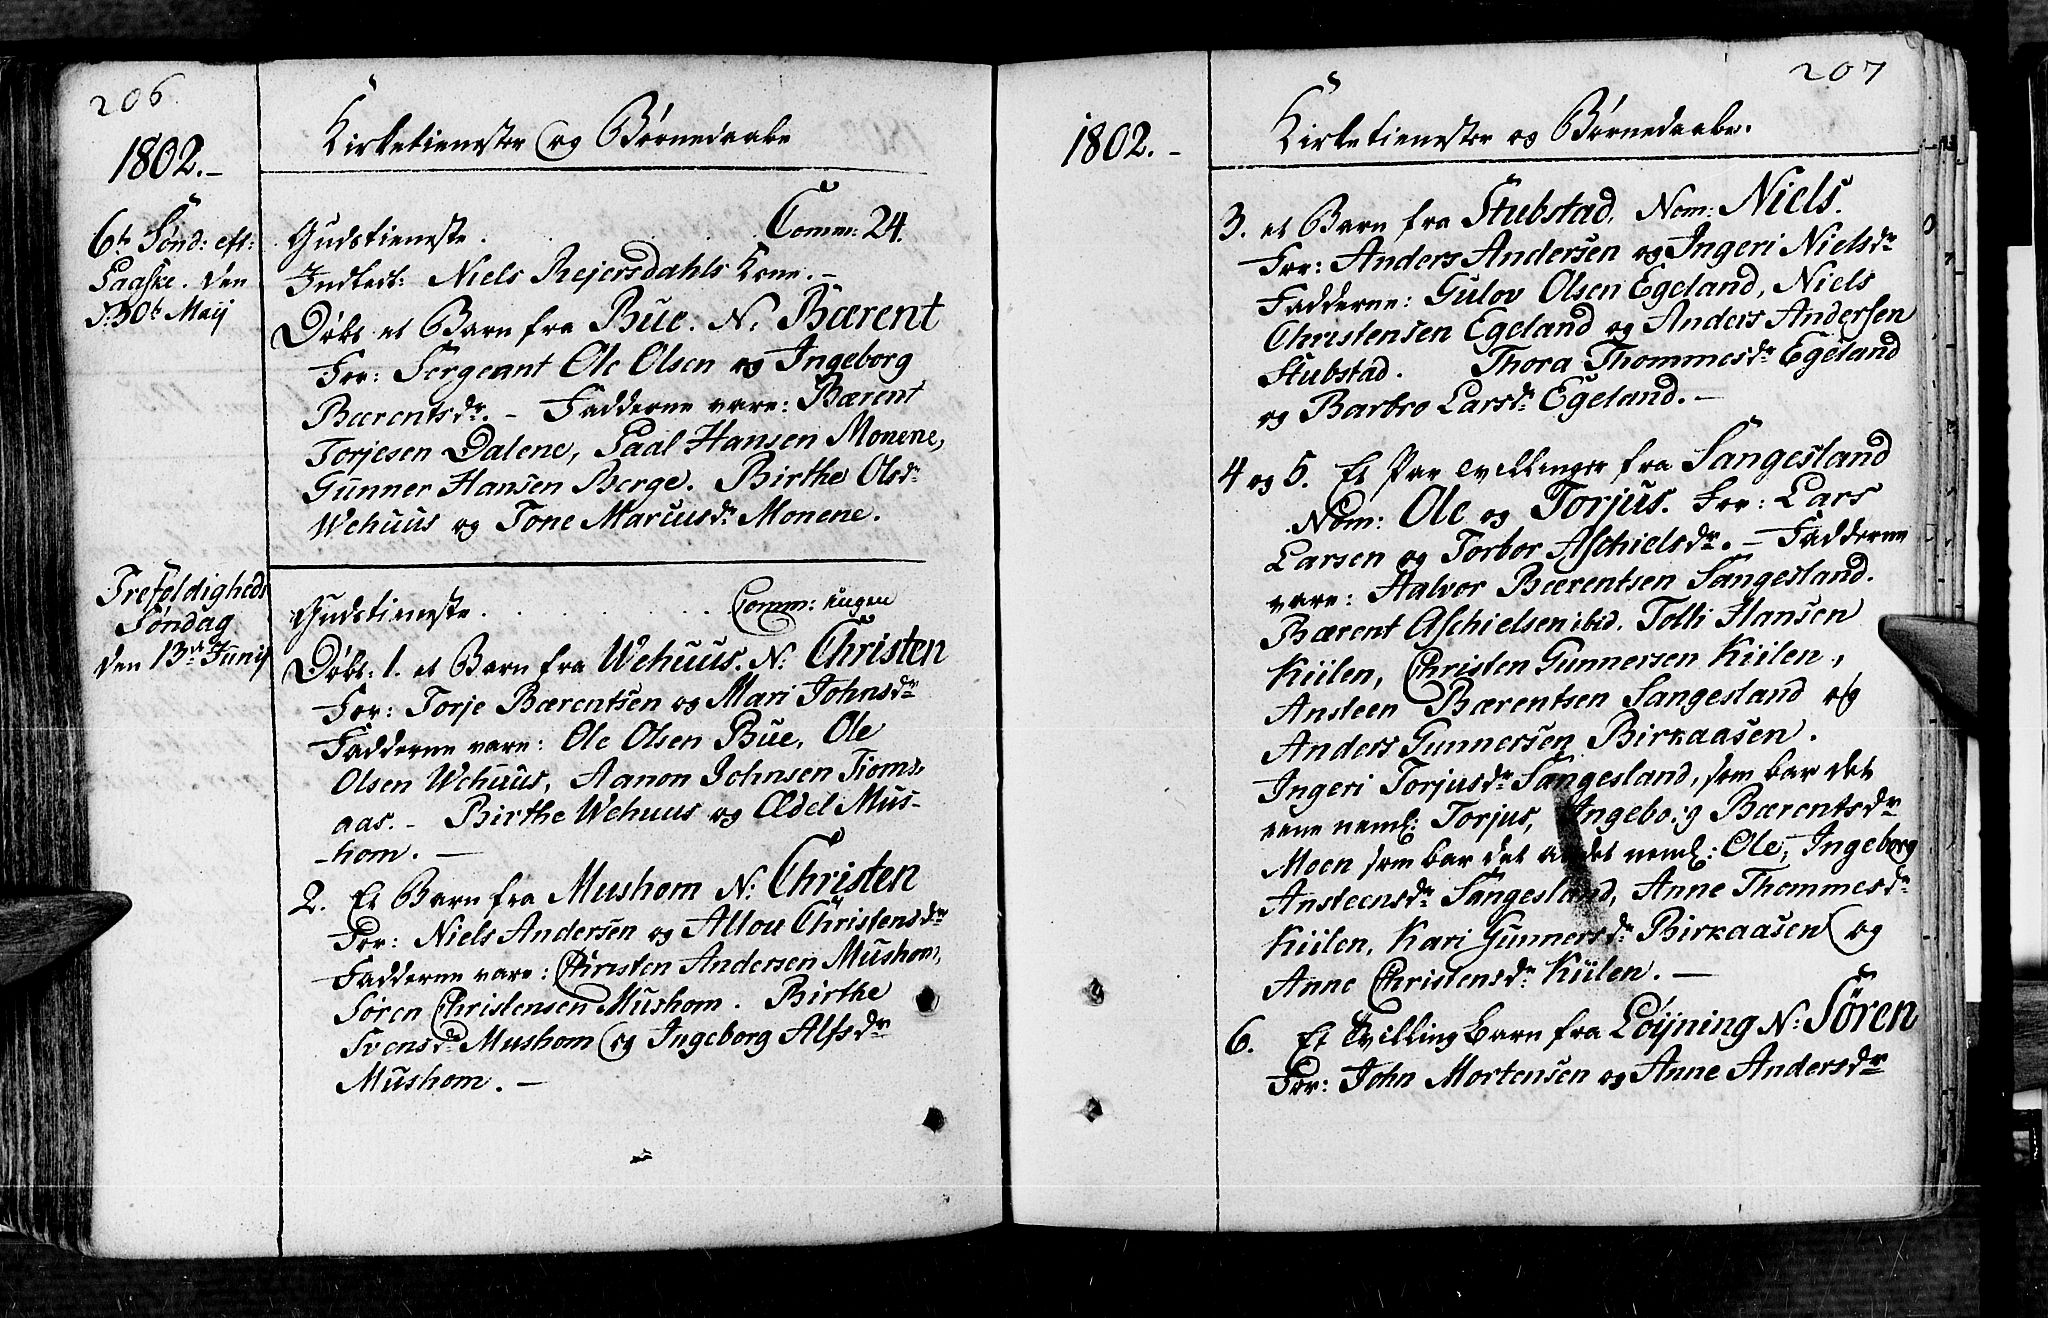 206.
1802.-
Kirketienester og Børnedaabe
6te Sønd: eft:
Paaske. den
30te Maij
Gudstieneste. . . . Comm: 24.
Indledt: Niels Rejersdahls Kone. -
Døbt et Barn fra Bue. N: Bærent
For: Sergeant Ole Olsen og Ingeborg
Bærentsdr. - Fadderne vare: Bærent
Torjesen Dalene, Paal Hansen Monene,
Gunner Hansen Berge. Birthe Olsdr
Wehuus og Tone Marcusdr Monene.
Trefoldigheds
Søndag
den 13de Junij
Gudstieneste. . . . . . . Comm: ingen
Døbt: 1. et Barn fra Wehuus. N: Christen
For: Torje Bærentsen og Mari Johnsdr
Fadderne vare: Ole Olsen Bue, Ole
Olsen Wehuus, Aanon Johnsen Tioms-
aas. - Birthe Wehuus og Ædel Mus-
-hom. -
2. Et Barn fra Mushom N: Christen
For: Niels Andersen og Allou Christensdr
Fadderne vare: Christen Andersen Mushom,
Søren Christensen Mushom. Birthe
Svensdr Mushom og Ingeborg Alfsdr
Mushom. -
207
1802. -
Kirketienester og Børnedaabe.
3. et Barn fra Stubstad. Nom: Niels.
For: Anders Andersen og Ingeri Nielsdr
Fadderne: Gulov Olsen Egeland, Niels
Christensen Egeland og Anders Andersen
Stubstad. Thora Thommesdr Egeland
og Barbro Larsdr Egeland. -
4 og 5. Et Par Tvillinger fra Sangesland
Nom: Ole og Torjus. For: Lars
Larsen og Torbor Aschielsdr. - Fadderne
vare: Halvor Bærentsen Sangesland.
Bærent Aschielsen ibid. Tolli Hansen
Kiilen, Christen Gunnersen Kiilen,
Ansteen Bærentsen Sangesland og
Anders Gunnersen Birkaasen.
Ingeri Torjusdr Sangesland, som bar det
eene neml: Torjus, Ingeborg Bærentsdr
Moen som bar det andet neml: Ole, Ingeborg
Ansteensdr Sangesland, Anne Thommesdr
Kiilen, Kari Gunnersdr Birkaasen og
Anne Christensdr Kiilen. -
6. Et Tvilling Barn fra Løijning N: Søren
For: John Mortensen og Anne Andersdr